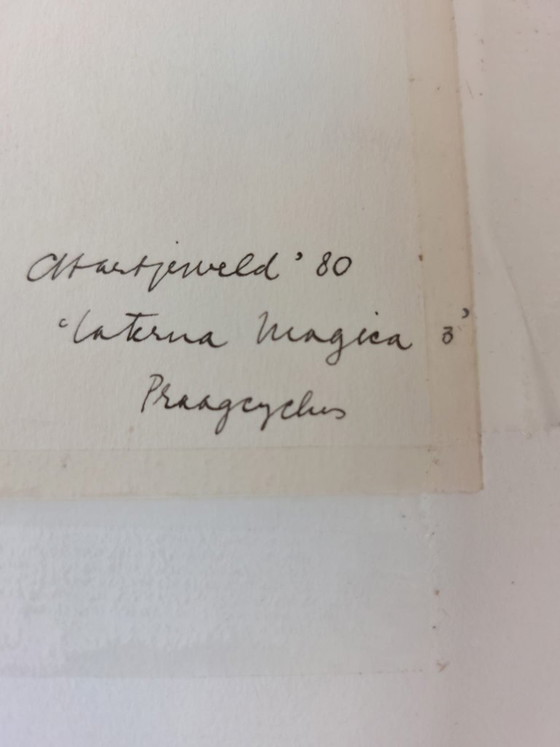 CHartjeveld '80
'Laterna Magica 3'
Praagcyclus